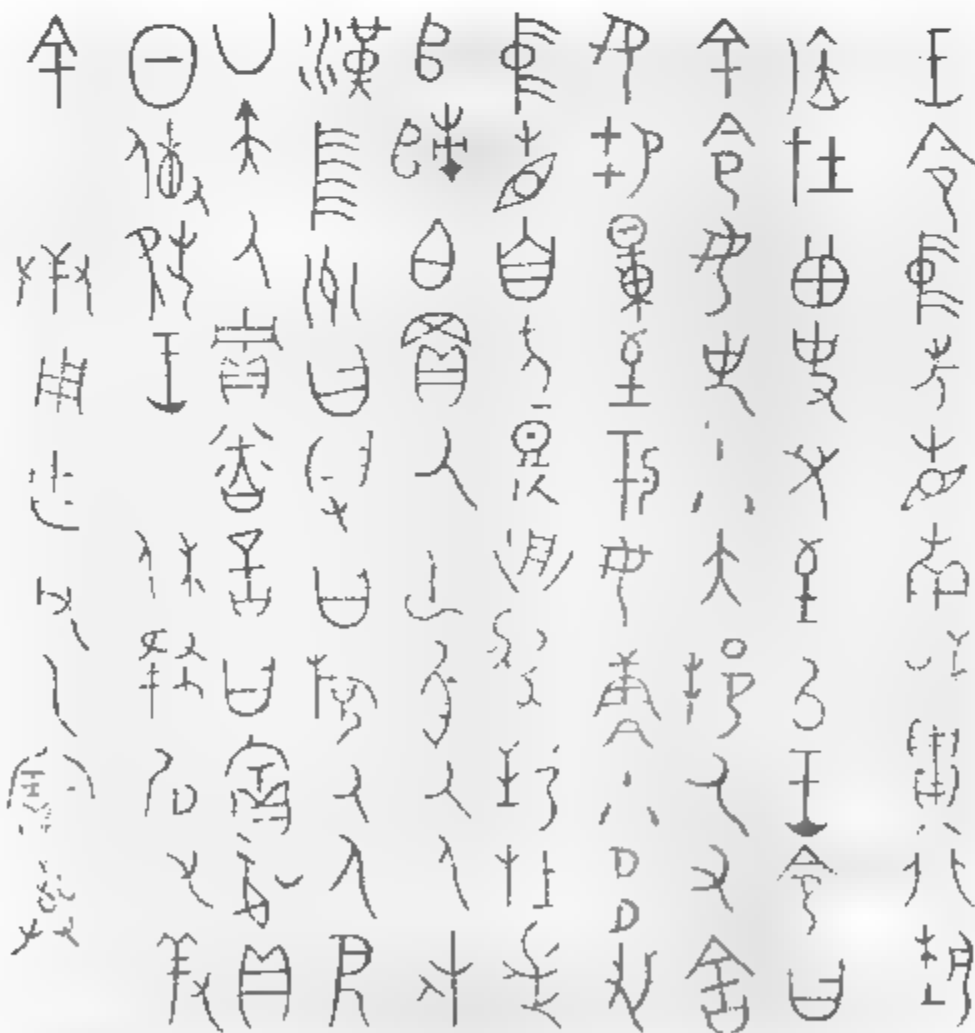 王令中先省南或貫行埶
在曾史兒至以王令曰
余令女史小大邦氒又舍
女芻量至于女庸小多
中省自方登造邦在噩
𠂤次白買父以自氒人戍
漢中州曰叚曰旄氒人
廿夫氒賈咨言曰賓貝
日傳王休肆肩又羞
余用乍父乙寶彝